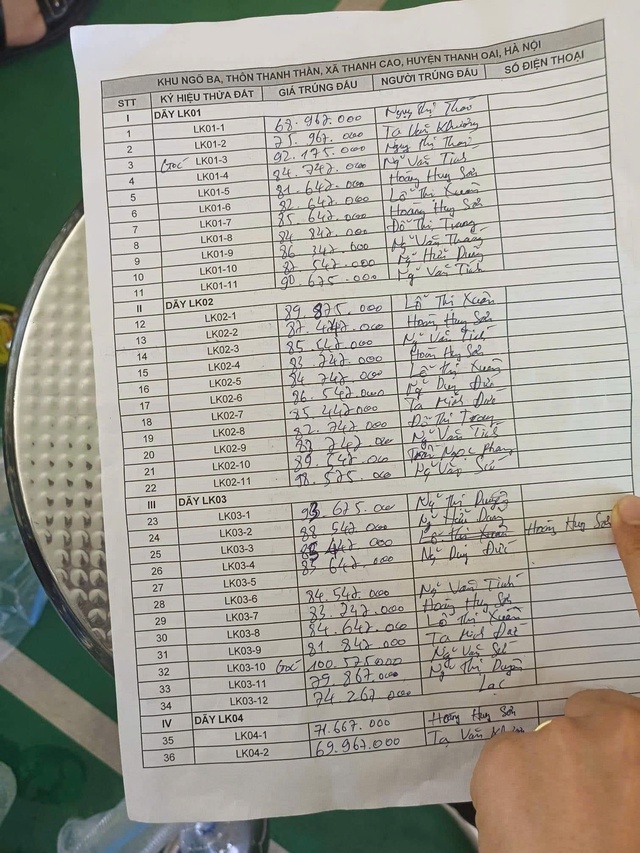 KHU NGÕ BA, THÔN THANH THẦN, XÃ THANH CAO, HUYỆN THANH OAI, HÀ NỘI
STT KÝ HIỆU THỬA ĐẤT GIÁ TRÚNG ĐẤU NGƯỜI TRÚNG ĐẤU SỐ ĐIỆN THOẠI
I DÃY LK01
1 LK01-1 68.967.000
2 LK01-2 75.967.000 Tạ Văn
3 Góc LK01-3 92.175.000
4 LK01-4 84.747.000 Ng Văn Tình
5 LK01-5 81.647.000 Hoàng Huy Sơn
6 LK01-6 82.647.000 Lỗ Thị Xuân
7 LK01-7 85.647.000 Hoàng Huy Sơn
8 LK01-8 84.847.000 Đỗ Thị Trang
9 LK01-9 86.347.000 Ng Văn Thắng
10 LK01-10 87.547.000 Ng Hữu Dũng
11 LK01-11 90.675.000 Ng Văn Tình
II DÃY LK02
12 LK02-1 89.875.000 Lỗ Thị Xuân
13 LK02-2 87.447.000 Hoàng Huy Sơn
14 LK02-3 85.547.000 Ng Văn Tình
15 LK02-4 83.747.000 Hoàng Huy Sơn
16 LK02-5 84.747.000 Lỗ Thị Xuân
17 LK02-6 86.547.000 Ng Duy Đức
18 LK02-7 85.447.000 Tạ Minh Đức
19 LK02-8 82.747.000 Đỗ Thị Trang
20 LK02-9 87.747.000 Ng Văn Tình
21 LK02-10 89.547.000 Trần Ngọc
22 LK02-11 98.575.000 Ng Văn
III DÃY LK03
23 LK03-1 93.675.000 Ng Thị
24 LK03-2 88.547.000 Ng Hữu Dũng
25 LK03-3 447.000 Lỗ Thị Xuân Hoàng Huy Sơn
26 LK03-4 85.647.000 Ng Duy Đức
27 LK03-5
28 LK03-6 84.547.000 Ng Văn Tình
29 LK03-7 83.747.000 Hoàng Huy Sơn
30 LK03-8 84.647.000 Lỗ Thị Xuân
31 LK03-9 81.847.000 Tạ Minh Đức
32 LK03-10 Góc 100.575.000 Ng Văn
33 LK03-11 79.867.000 Ng Thị
34 LK03-12 74.267.000
IV DÃY LK04
35 LK04-1 71.667.000 Hoàng Huy Sơn
36 LK04-2 69.967.000 Tạ Văn